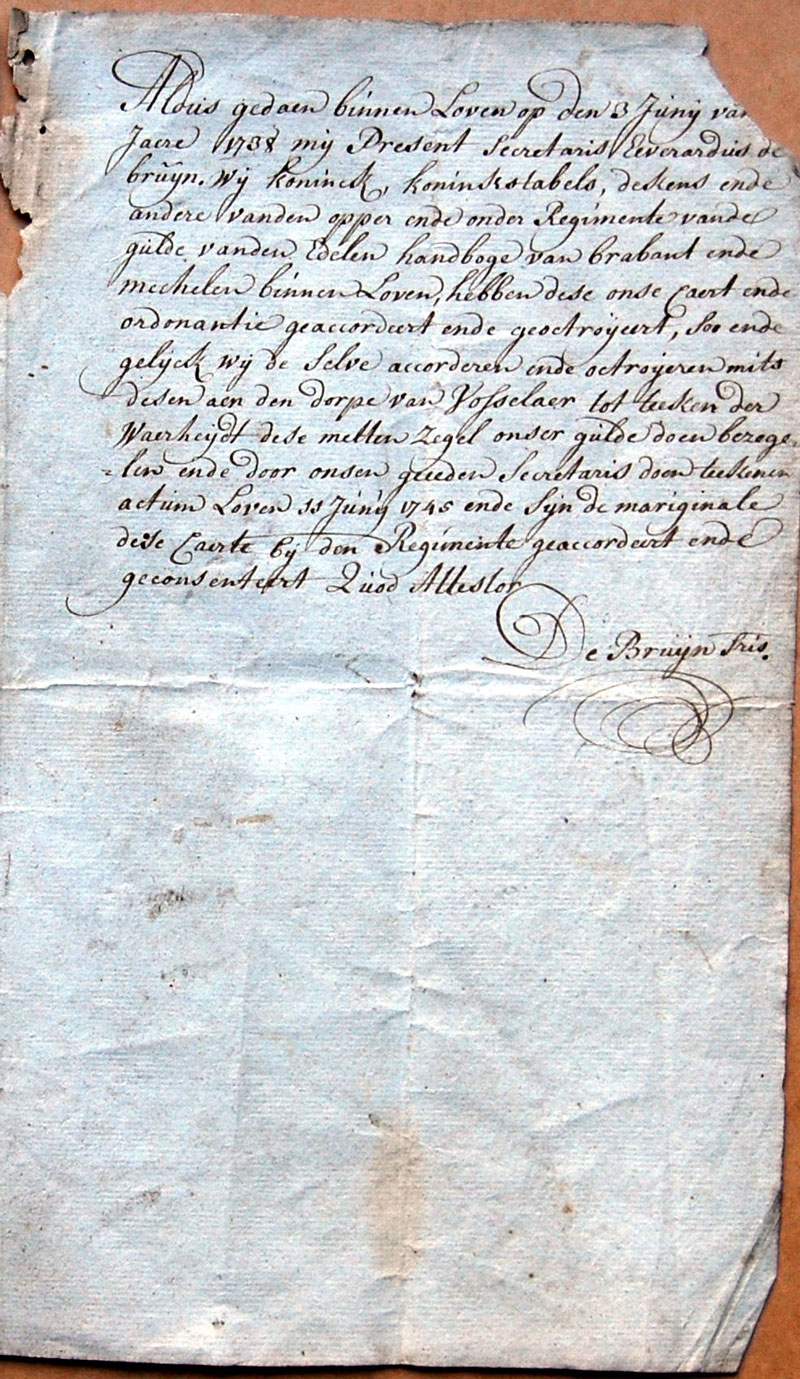 Aldus gedaen binnen Loven op den 3 Junÿ van
Jaere 1738 mÿ Present Secretaris Everardus de
bruÿn. Wÿ koninck, koninkstabels, deskens ende
andere vanden opper ende onder Regimente vande
gulde vanden Edelen handboge van brabant ende
mechelen binnen Loven, hebben dese onse Caert ende
ordonantie geaccordeert ende geoctroÿeert, soo ende
gelÿck wÿ de selve accorderen ende octroÿeren mits
desen aen den dorpe van Vosselaer tot teeken der
Waerheÿdt dese metten Zegel onser gulde doen bezege
=len ende door onsen geeden Secretaris doen teekenen
actum Loven 11 Junÿ 1745 ende sÿn de mariginale
dese Caerte bÿ den Regimente geaccordeert ende
geconsenteert Quod Attestor
De Bruÿn Sris.